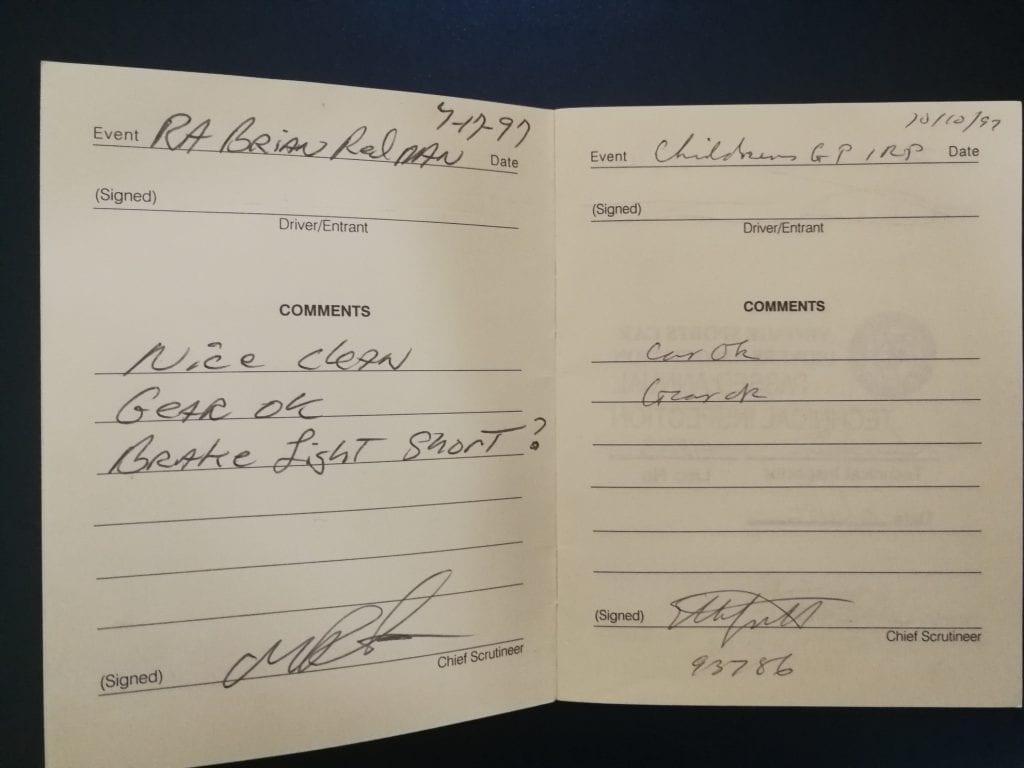 7-17-97
Event RA BRIAN Redman Date
(Signed)
Driver/Entrant
COMMENTS
Nice clean
GEAR OK
BRAKE Light Short?
(Signed) Chief Scrutineer
10/10/97
Event Childrens GP IRP Date
(Signed)
Driver/Entrant
COMMENTS
Car ok
Gear ok
(Signed)
Chief Scrutineer
93786